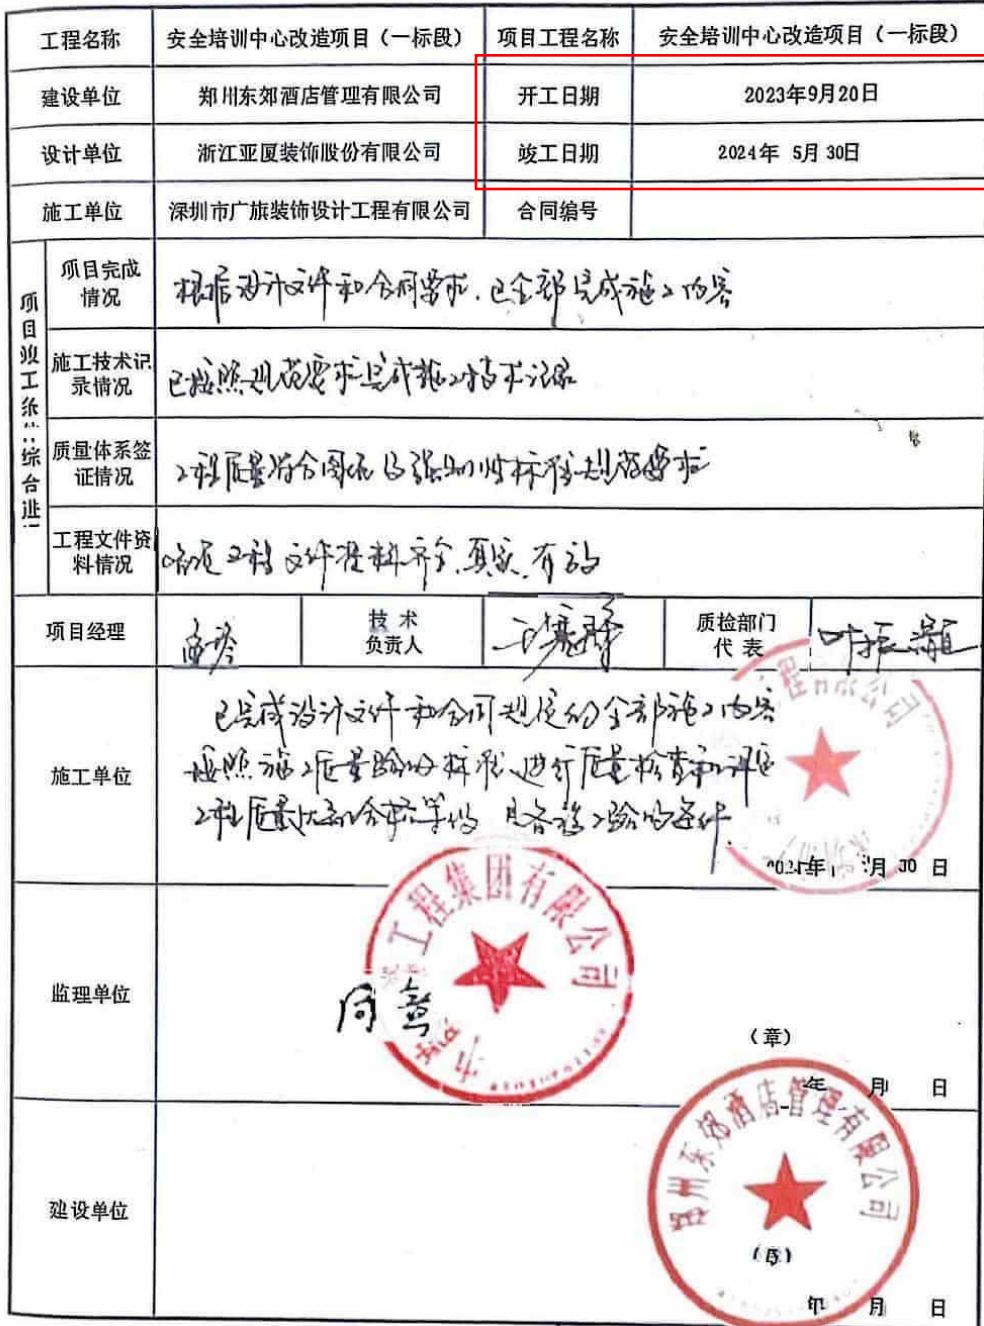 工程名称 安全培训中心改造项目（一标段） 项目工程名称 安全培训中心改造项目（一标段）
建设单位 郑州东郊酒店管理有限公司 开工日期 2023年9月20日
设计单位 浙江亚厦装饰股份有限公司 竣工日期 2024年 5月30日
施工单位 深圳市广旗装饰设计工程有限公司 合同编号
项目竣工条件综合
项目完成
情况
根据设计文件和合同要求，已全部完成施工内容
施工技术记
录情况
已按照规范要求完成施工技术记录
质量体系签
证情况
工程质量符合国家 强制性标准 规范要求
工程文件资
料情况
工程文件资料齐全、真实、有效
项目经理
技 术
负责人
质检部门
代 表
叶振灏
施工单位
已完成设计文件和合同规定的全部施工内容
按照施工质量验收标准，进行质量检查和评定
工程质量达到合格等级 具备竣工验收条件
年 月 30 日
程有限公司
监理单位
工程集团有限公司
（章）
年 月 日
建设单位
郑州东郊酒店管理有限公司
年 月 日